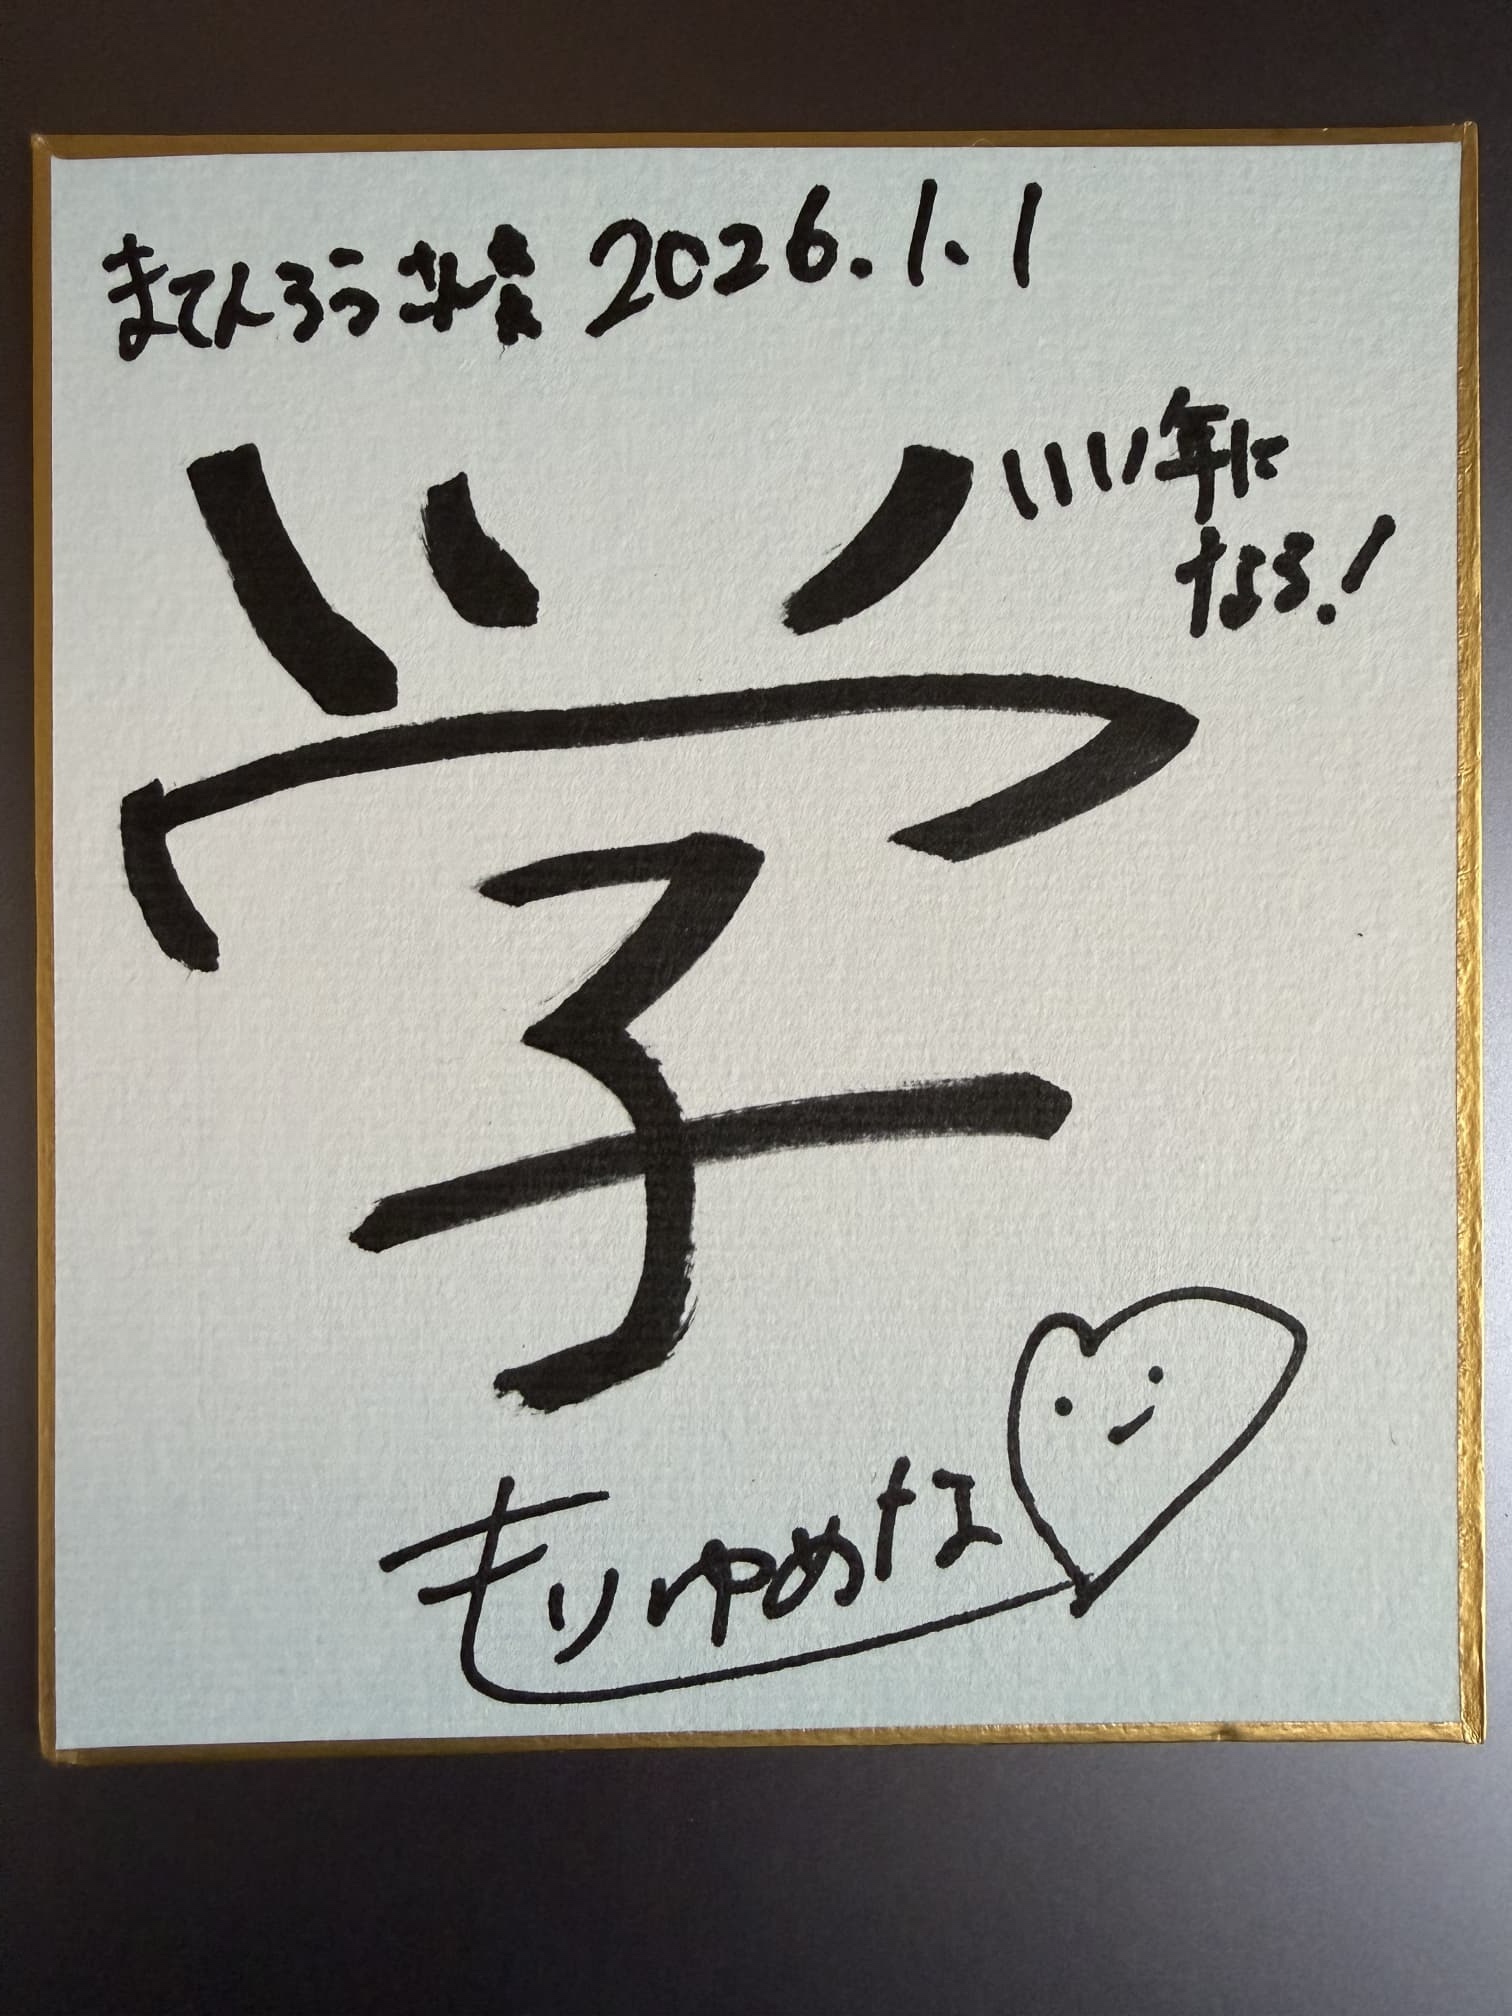 まてんろうさん 2026.1.1
いい年に
なろ!
学
もりゆめな